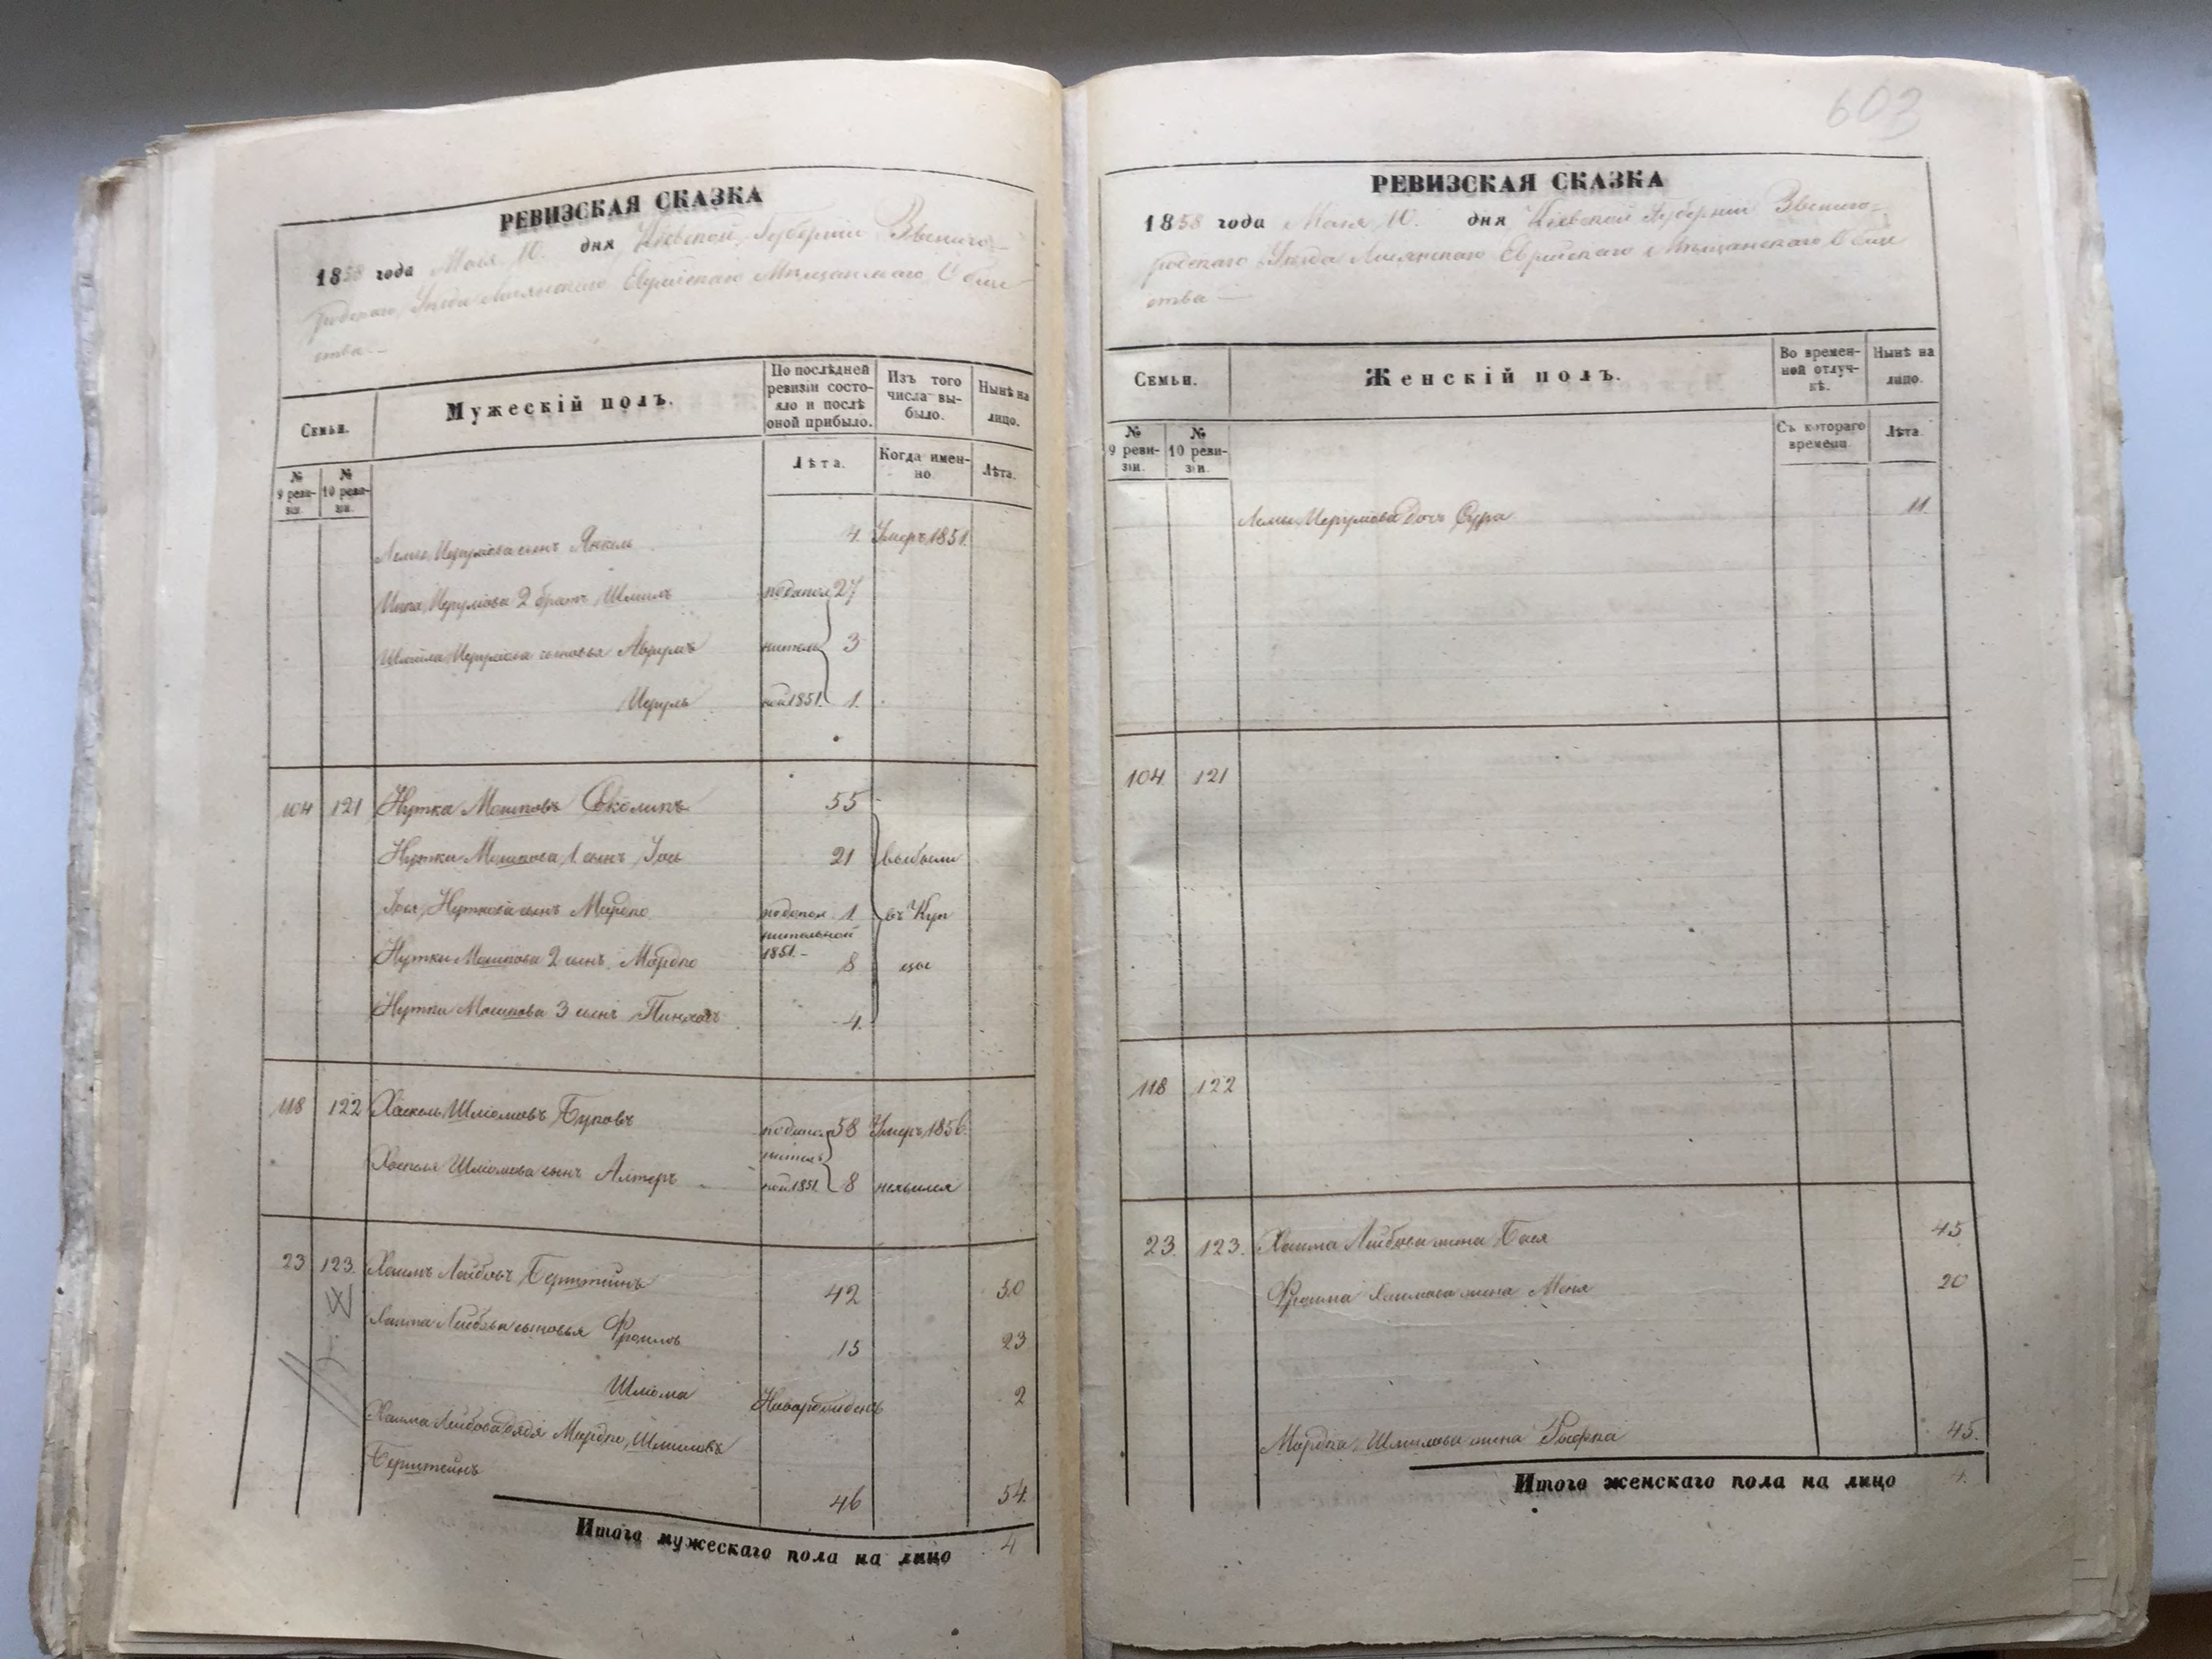 603
РЕВИЗСКАЯ СКАЗКА
1858 года Маія 10. дня Кіевской Губерніи Звениго-
родскаго Уѣзда Лисянскаго Еврейскаго Мѣщанскаго Обще
ства.-
Семьи.
Мужескій полъ.
По послѣдней ревизіи состояло и послѣ оной прибыло.
Изъ того числа выбыло.
Нынѣ на лицо.
№ 9 ревизіи.
№ 10 ревизіи.
Лѣта.
Когда именно.
Лѣта.
сынъ Янкель 4. Умеръ 1851.
2 братъ Шмиль 27
сыновья Аврумъ 3
1851. 1.
104 121 Нутка Мошковъ 55
Нутки Мошкова 1 сынъ Іось 21 выбыли
Іося Нуткова сынъ Мордко 1. въ Куп
нительной
1851.-
Нутки Мошкова 2 сынъ Мордко 8 цы
Нутки Мошкова 3 сынъ Пинхасъ 4.
118 122 Хаскель Шліомовъ 58 Умеръ 1856.
Хаскеля Шліомова сынъ Алтеръ 1851 8 неявился
23 123. Хаимъ Лейбовъ Бернштейнъ 42 50
Хаима Лейбова сыновья Фроимъ 15 23
Шліома Новорожденъ 2
Хаима Лейбова дядя Мордко Шмиловъ
Бернштейнъ
46 54.
Итого мужескаго пола на лицо 4
РЕВИЗСКАЯ СКАЗКА
1858 года Маія 10. дня Кіевской Губерніи Звениго-
родскаго Уѣзда Лисянскаго Еврейскаго Мѣщанскаго Обще
ства
Семьи.
Женскій полъ.
Во временной отлучкѣ.
Нынѣ на лицо.
№ 9 ревизіи.
№ 10 ревизіи.
Съ котораго времени.
Лѣта.
дочь Сура 11
104 121
118 122
23. 123. Хаима Лейбова жена Бася 45
Фроима Хаимова жена Меня 20
Мордка Шмилова жена Рыфка 45.
Итого женскаго пола на лицо 4.